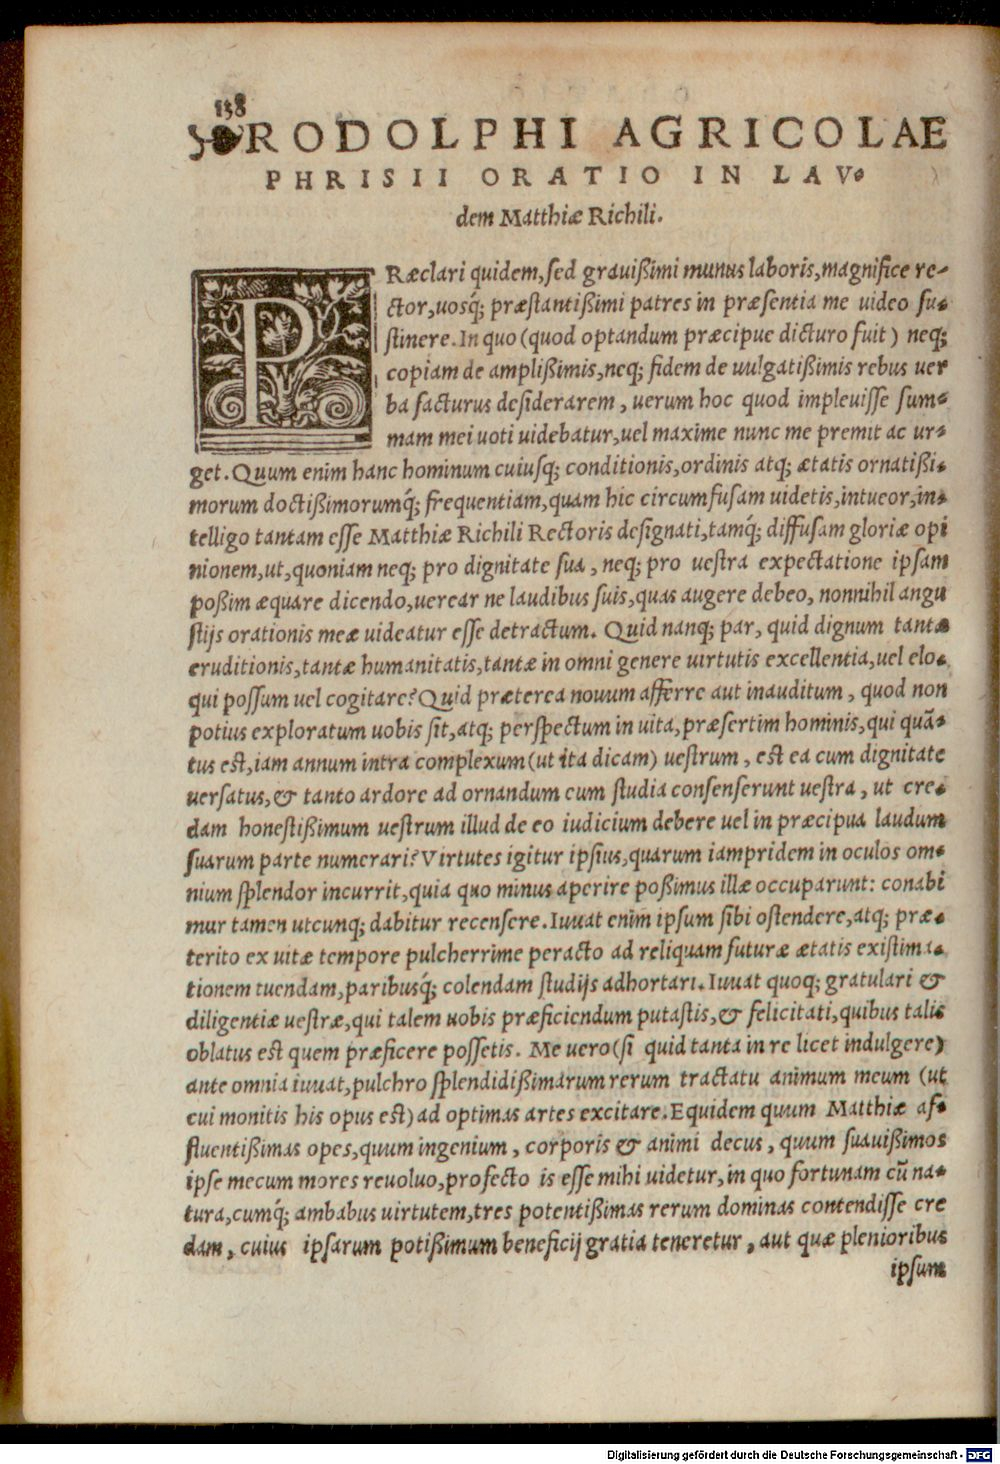 138
RODOLPHI AGRICOLAE
PHRISII ORATIO IN LAV-
dem Matthiæ Richili.
PRæclari quidem, sed grauißimi munus laboris, magnifice re-
ctor, uosq́; præstantißimi patres in præsentia me uideo su-
stinere. In quo (quod optandum præcipue dicturo fuit) neq;
copiam de amplißimis, neq; fidem de uulgatißimis rebus uer
ba facturus desiderarem, uerum hoc quod impleuisse sum-
mam mei uoti uidebatur, uel maxime nunc me premit ac ur-
get. Quum enim hanc hominum cuiusq; conditionis, ordinis atq; ætatis ornatißi-
morum doctißimorumq́; frequentiam, quam hic circumfusam uidetis, intueor, in-
telligo tantam esse Matthiæ Richili Rectoris designati, tamq́; diffusam gloriæ opi
nionem, ut, quoniam neq; pro dignitate sua, neq; pro uestra expectatione ipsam
poßim æquare dicendo, uerear ne laudibus suis, quas augere debeo, nonnihil angu
stijs orationis meæ uideatur esse detractum. Quid nanq; par, quid dignum tantæ
eruditionis, tantæ humanitatis, tantæ in omni genere uirtutis excellentia, uel elo-
qui possum uel cogitare? Quid præterea nouum afferre aut inauditum, quod non
potius exploratum uobis sit, atq; perspectum in uita, præsertim hominis, qui quā-
tus est, iam annum intra complexum (ut ita dicam) uestrum, est ea cum dignitate
uersatus, & tanto ardore ad ornandum eum studia consenserunt uestra, ut cre-
dam honestißimum uestrum illud de eo iudicium debere uel in præcipua laudum
suarum parte numerari? Virtutes igitur ipsius, quarum iampridem in oculos om-
nium splendor incurrit, quia quo minus aperire poßimus illæ occuparunt: conabi
mur tamen utcunq; dabitur recensere. Iuuat enim ipsum sibi ostendere, atq; præ-
terito ex uitæ tempore pulcherrime peracto ad reliquam futuræ ætatis existima-
tionem tuendam, paribusq́; colendam studijs adhortari. Iuuat quoq; gratulari &
diligentiæ uestræ, qui talem uobis præficiendum putastis, & felicitati, quibus talis
oblatus est quem præficere possetis. Me uero (si quid tanta in re licet indulgere)
ante omnia iuuat, pulchro splendidißimarum rerum tractatu animum meum (ut
cui monitis his opus est) ad optimas artes excitare. Equidem quum Matthiæ af-
fluentißimas opes, quum ingenium, corporis & animi decus, quum suauißimos
ipse mecum mores reuoluo, profecto is esse mihi uidetur, in quo fortunam cū na-
tura, cumq́; ambabus uirtutem, tres potentißimas rerum dominas contendisse cre
dam, cuius ipsarum potißimum beneficij gratia teneretur, aut quæ plenioribus
ipsum
Digitalisierung gefördert durch die Deutsche Forschungsgemeinschaft - DFG